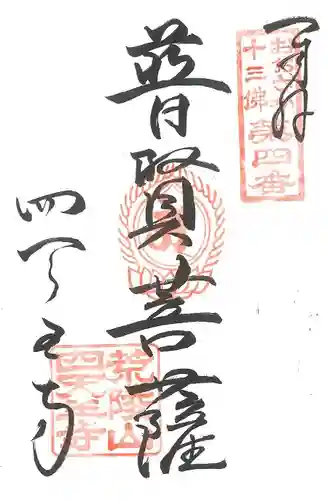 奉拝
十三佛
第四番
普賢菩薩
四天王寺
荒陵山
四天王寺